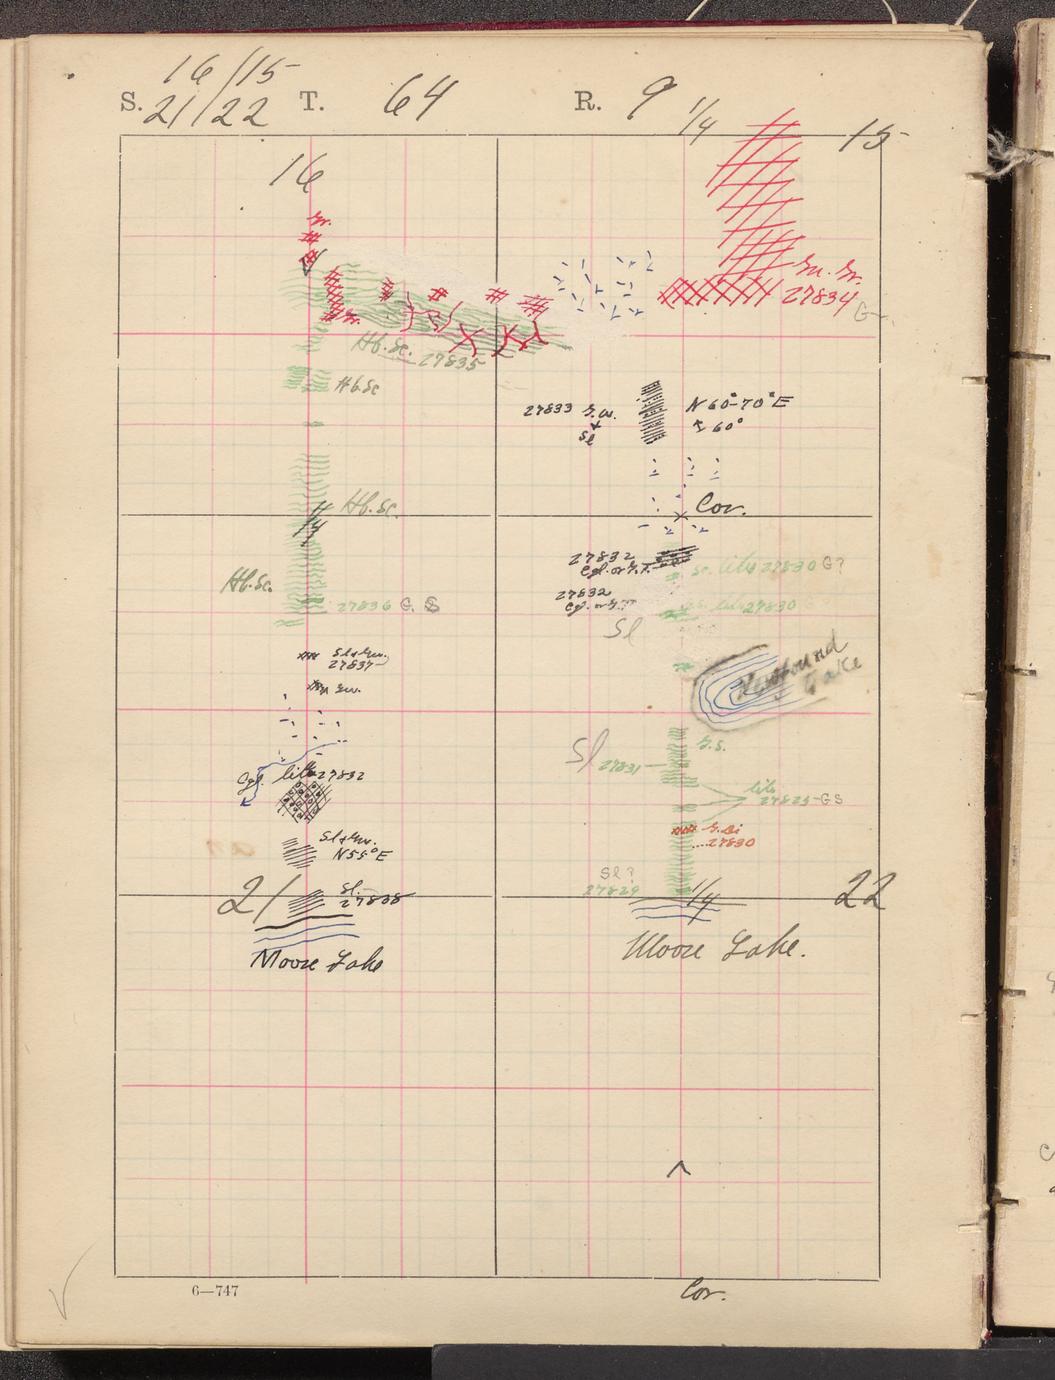 16/15
S. 21/22 T. 64 R. 9
1/4 15
16
Gr.
Gn. Gr.
27834
G
Gr.
Hb. Sc. 27835
Hb Sc
27833 G.w.
+
Sl
N 60°-70°E
60°
Cor.
Hb. Sc.
1/4
27832
Cgl. or G.T.
Sc. like 27830 G?
Hb. Sc.
27836 G. S
27832
Cgl. or G.T.
G.S. like 27830 G?
Sl
Sl + Gw.
27837
Gw.
Newfound
Lake
G.S.
Sl 27831
Cgl. like 27832
like
27825-GS
G. Di
27830
Sl + Gw.
N55°E
Sl?
27829
21
Sl.
27838
1/4
22
Moose Lake
Moose Lake.
6—747
Cor.